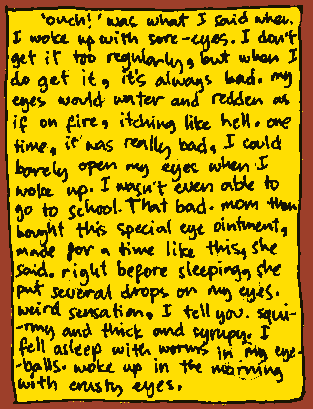 "ouch!" was what I said when
I woke up with sore-eyes. I don't
get it too regularly, but when I
do get it, it's always bad. my
eyes would water and redden as
if on fire, itching like hell. one
time, it was really bad, I could
barely open my eyes when I
woke up. I wasn't even able to
go to school. That bad. mom then
bought this special eye ointment,
made for a time like this, she
said. right before sleeping, she
put several drops on my eyes.
weird sensation, I tell you. squi-
-rmy and thick and syrupy. I
fell asleep with worms in my eye-
-balls. woke up in the morning
with crusty eyes.